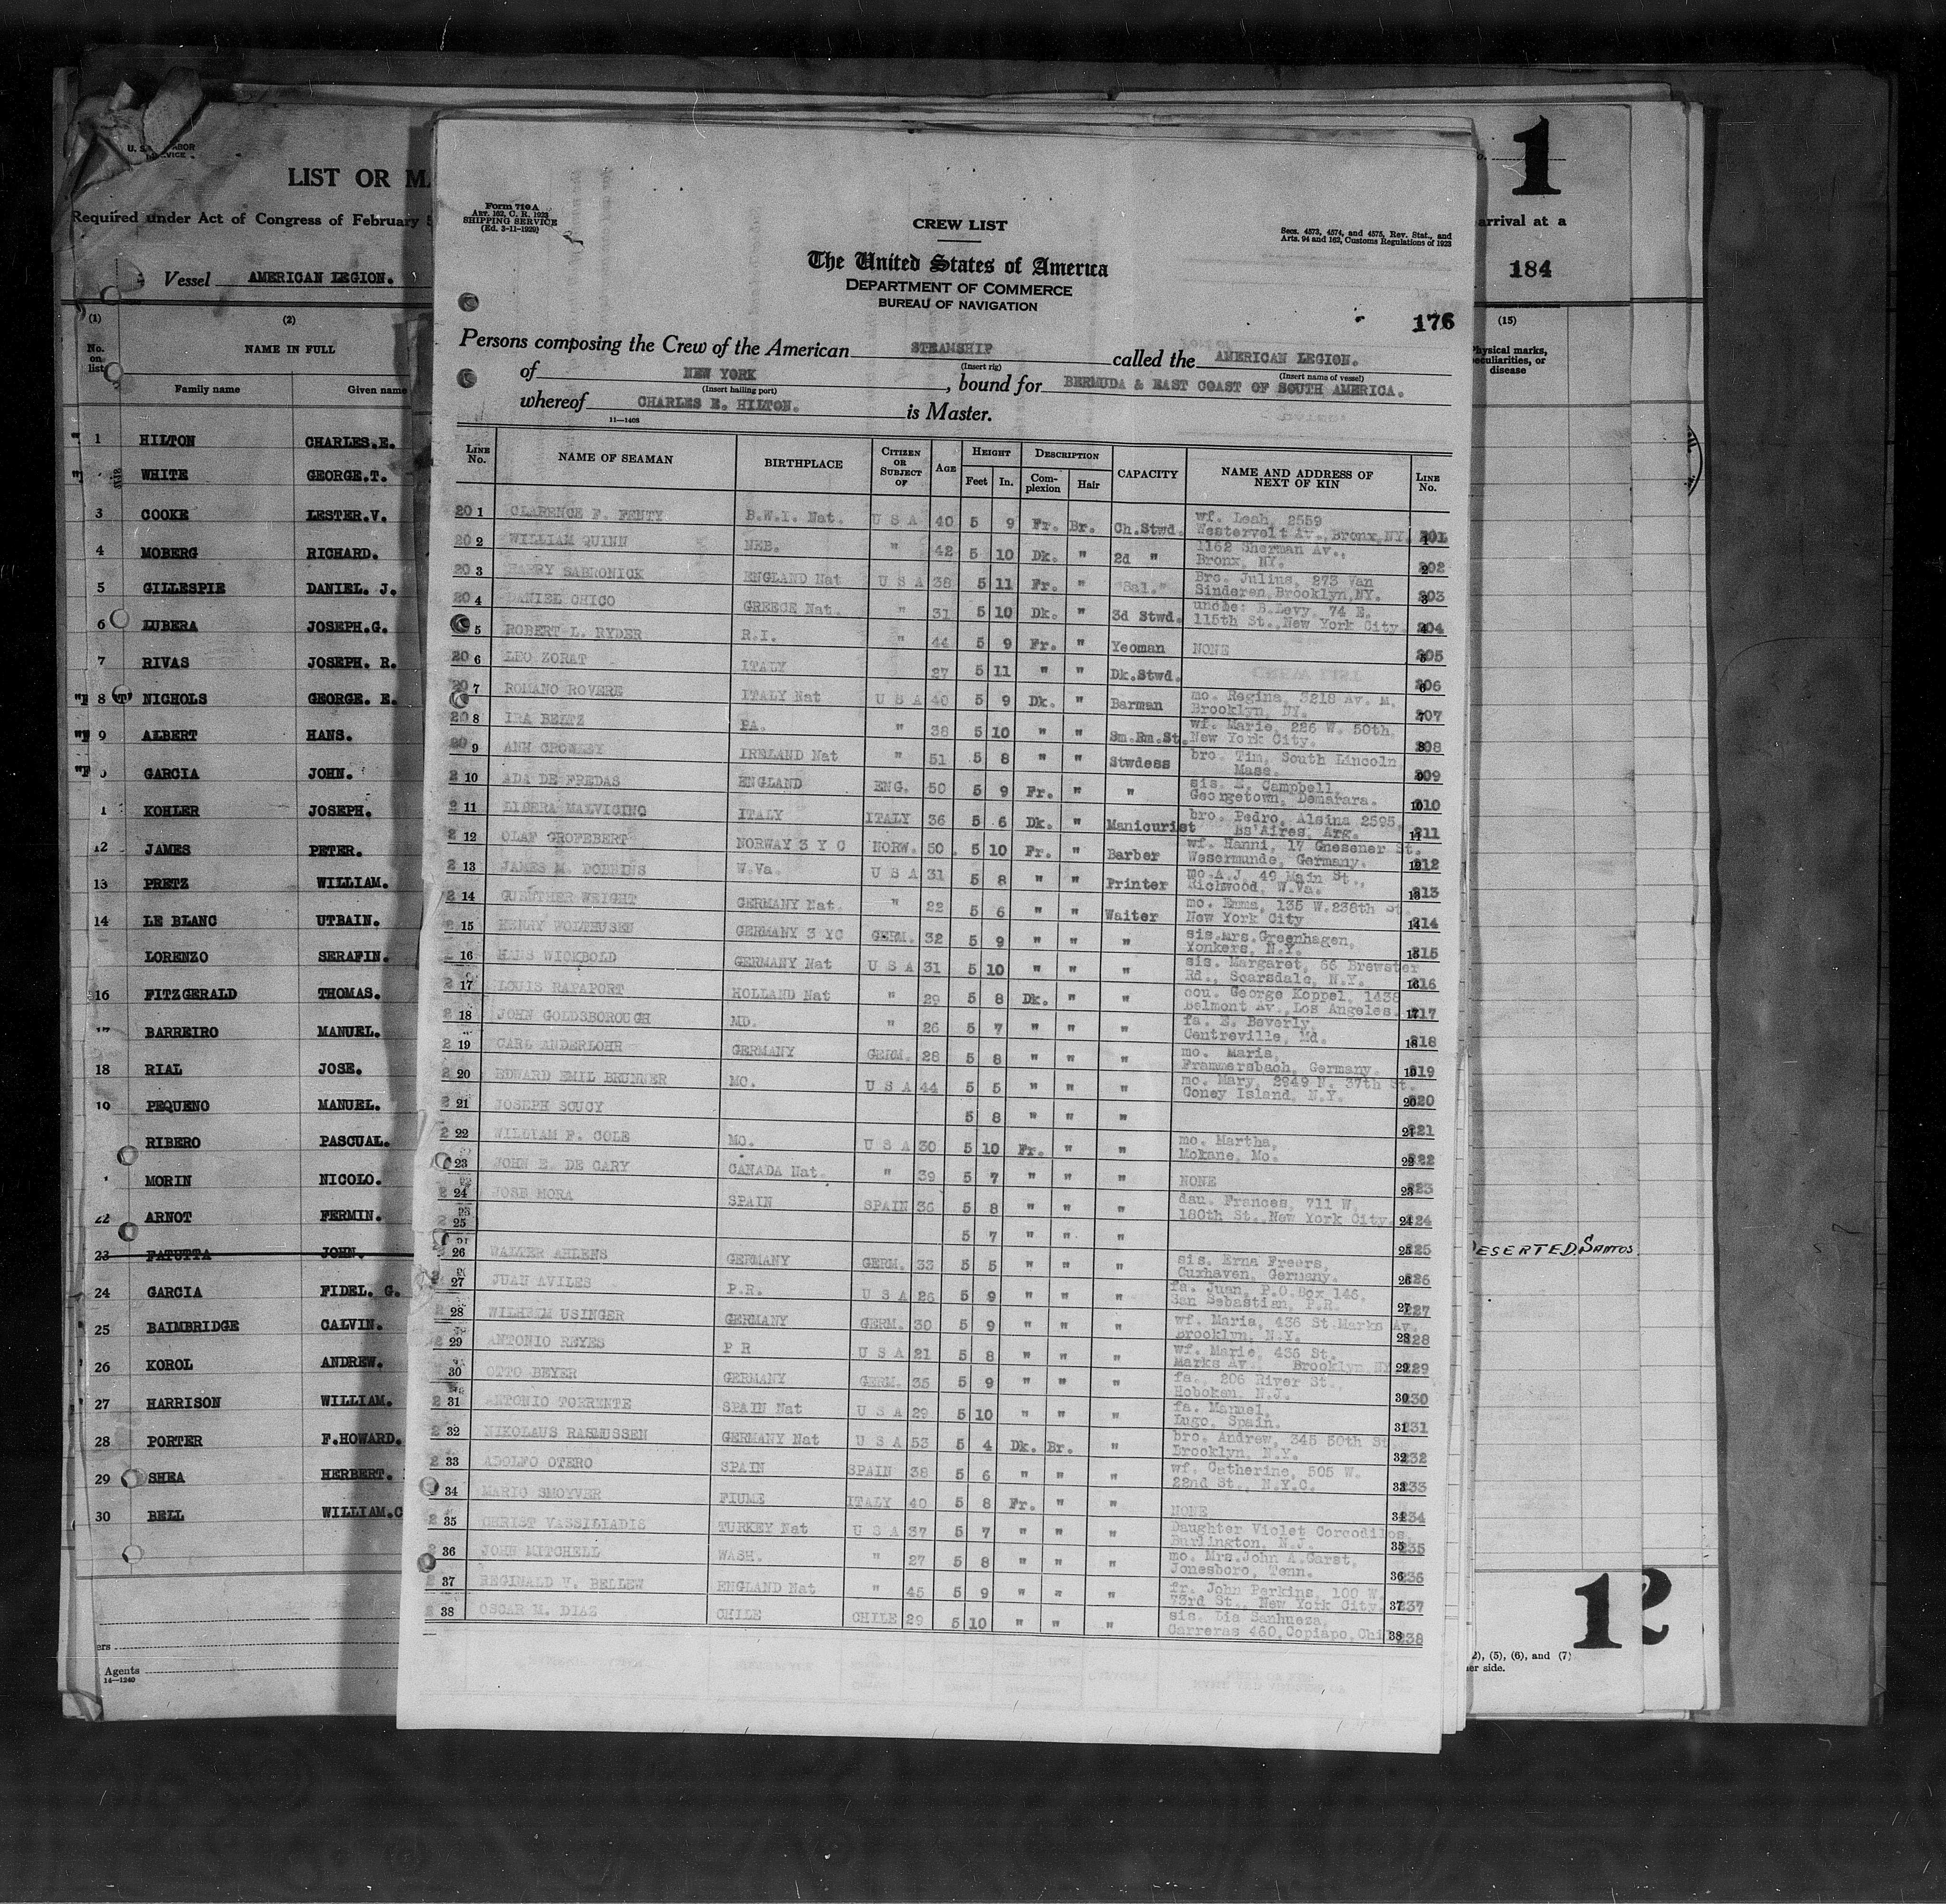 U. S. LABOR
SERVICE
LIST OR M
Required under Act of Congress of February 5
Vessel AMERICAN LEGION.
(1) (2)
No. on list
NAME IN FULL
Family name Given name
1 HILTON CHARLES.E.
WHITE GEORGE.T.
3 COOKE LESTER.V.
4 MOBERG RICHARD.
5 GILLESPIE DANIEL. J.
6 LUBERA JOSEPH.G.
7 RIVAS JOSEPH. R.
8 NICHOLS GEORGE. E.
9 ALBERT HANS.
GARCIA JOHN.
1 KOHLER JOSEPH.
12 JAMES PETER.
13 PRETZ WILLIAM.
14 LE BLANC UTBAIN.
LORENZO SERAFIN.
16 FITZGERALD THOMAS.
BARREIRO MANUEL.
18 RIAL JOSE.
19 PEQUENO MANUEL.
RIBERO PASCUAL.
MORIN NICOLO.
22 ARNOT FERMIN.
23 FATUTTA JOHN.
24 GARCIA FIDEL. G.
25 BAIMBRIDGE CALVIN.
26 KOROL ANDREW.
27 HARRISON WILLIAM.
28 PORTER F.HOWARD.
29 SHEA HERBERT.
30 BELL WILLIAM.C
ers
Agents
14—1240
Form 710 A
ART. 162, C. R. 1923
SHIPPING SERVICE
(Ed. 3-11-1929)
CREW LIST
Secs. 4573, 4574, and 4575, Rev. Stat., and
Arts. 94 and 162, Customs Regulations of 1923
The United States of America
DEPARTMENT OF COMMERCE
BUREAU OF NAVIGATION
176
Persons composing the Crew of the American STEAMSHIP called the AMERICAN LEGION.
(Insert rig) (Insert name of vessel)
of NEW YORK, bound for BERMUDA & EAST COAST OF SOUTH AMERICA.
(Insert hailing port)
whereof CHARLES E. HILTON. is Master.
11—1408
LINE No. NAME OF SEAMAN BIRTHPLACE CITIZEN OR SUBJECT OF AGE HEIGHT Feet In. DESCRIPTION Complexion Hair CAPACITY NAME AND ADDRESS OF NEXT OF KIN LINE No.
1 CLARENCE F. FENTY B.W.I. Nat. U S A 40 5 9 Fr. Br. Ch.Stwd. wf. Leah, 2559 Westervelt Av., Bronx,NY. 201
2 WILLIAM QUINN NEB. " 42 5 10 Dk. " 2d " 1162 Sherman Av., Bronx, NY. 202
3 HARRY SABRONICK ENGLAND Nat U S A 38 5 11 Fr. " "Sal." Bro. Julius, 273 Van Sinderen,Brooklyn,NY. 203
4 DANIEL CHICO GREECE Nat. " 31 5 10 Dk. " 3d Stwd. uncle: B.Levy, 74 E. 115th St.,New York City. 204
5 ROBERT L. RYDER R.I. " 44 5 9 Fr. " Yeoman NONE 205
6 LEO ZORAT ITALY 27 5 11 " " Dk.Stwd. 206
7 ROMANO ROVERE ITALY Nat U S A 40 5 9 Dk. " Barman mo. Regina, 3218 Av. M, Brooklyn, NY. 207
8 IRA BELTZ PA. " 38 5 10 " " Sm.Rm.St. wf. Marie, 226 W. 50th, New York City. 208
9 ANN CROWLEY IRELAND Nat " 51 5 8 " " Stwdess bro. Tim, South Lincoln Mass. 209
10 ADA DE FREDAS ENGLAND ENG. 50 5 9 Fr. " " sis. E. Campbell, Georgetown, Demarara. 210
11 LIBERA MALVICINO ITALY ITALY 36 5 6 Dk. " Manicurist bro. Pedro, Alsina 2595, Bs'Aires, Arg. 211
12 OLAF GROFEBERT NORWAY 3 Y C NORW. 50 5 10 Fr. " Barber wf. Hanni, 17 Gnesener St. Wesermunde, Germany. 212
13 JAMES M. DOBBINS W.Va. U S A 31 5 8 " " Printer mo.A.J. 49 Main St., Richwood, W.Va. 213
14 GUENTHER WEIGHT GERMANY Nat. " 22 5 6 " " Waiter mo. Emma, 135 W.238th St. New York City 214
15 HENRY WOLTHUSEN GERMANY 3 YC GERM. 32 5 9 " " " sis.Mrs.Greenhagen, Yonkers, N.Y. 215
16 HANS WICKBOLD GERMANY Nat U S A 31 5 10 " " " sis. Margaret, 66 Brewster Rd., Scarsdale, N.Y. 216
17 LOUIS RAPAPORT HOLLAND Nat " 29 5 8 Dk. " " cou. George Koppel, 1438 Belmont Av.,Los Angeles. 217
18 JOHN GOLDSBOROUGH MD. " 26 5 7 " " " fa. E. Beverly, Centreville, Md. 218
19 CARL ANDERLOHR GERMANY GERM. 28 5 8 " " " mo. Maria, Frammersbach, Germany. 219
20 EDWARD EMIL BRUNNER MO. U S A 44 5 5 " " " mo. Mary, 2949 N. 37th St. Coney Island, N.Y. 220
21 JOSEPH SOUCY 5 8 " " " 221
22 WILLIAM F. COLE MO. U S A 30 5 10 Fr. " " mo. Martha, Mokane, Mo. 222
23 JOHN E. DE GARY CANADA Nat. " 39 5 7 " " " NONE 223
24 JOSE MORA SPAIN SPAIN 36 5 8 " " " dau. Frances, 711 W. 180th St.,New York City. 224
25 5 7 " " " 225
26 WALTER AHLENS GERMANY GERM. 33 5 5 " " " sis. Erna Freers, Cuxhaven, Germany. 226
27 JUAN AVILES P.R. U S A 26 5 9 " " " fa. Juan, P.O.Box 146, San Sebastian, P.R. 227
28 WILHELM USINGER GERMANY GERM. 30 5 9 " " " wf. Maria, 436 St.Marks Av. Brooklyn, N.Y. 228
29 ANTONIO REYES P R U S A 21 5 8 " " " wf. Marie, 436 St. Marks Av., Brooklyn,NY 229
30 OTTO BEYER GERMANY GERM. 35 5 9 " " " fa., 206 River St., Hoboken, N.J. 230
31 ANTONIO TORRENTE SPAIN Nat U S A 29 5 10 " " " fa. Manuel, Lugo, Spain. 231
32 NIKOLAUS RASMUSSEN GERMANY Nat U S A 53 5 4 Dk. Br. " bro. Andrew, 345 50th St Brooklyn, N.Y. 232
33 ADOLFO OTERO SPAIN SPAIN 38 5 6 " " " wf. Catherine, 505 W. 22nd St., N.Y.C. 233
34 MARIO SMOYVER FIUME ITALY 40 5 8 Fr. " " NONE 234
35 CHRIST VASSILIADIS TURKEY Nat U S A 37 5 7 " " " Daughter Violet Corcodilos, Burlington, N.J. 235
36 JOHN MITCHELL WASH. " 27 5 8 " " " mo. Mrs.John A.Garst, Jonesboro, Tenn. 236
37 REGINALD V. BELLEW ENGLAND Nat " 45 5 9 " " " fr. John Perkins, 100 W. 73rd St., New York City. 237
38 OSCAR M. DIAZ CHILE CHILE 29 5 10 " " " sis. Lia Sanhueza, Carreras 460,Copiapo,Chil 238
1
arrival at a
184
(15)
Physical marks, peculiarities, or disease
DESERTED.SANTOS.
12
2), (5), (6), and (7)
er side.